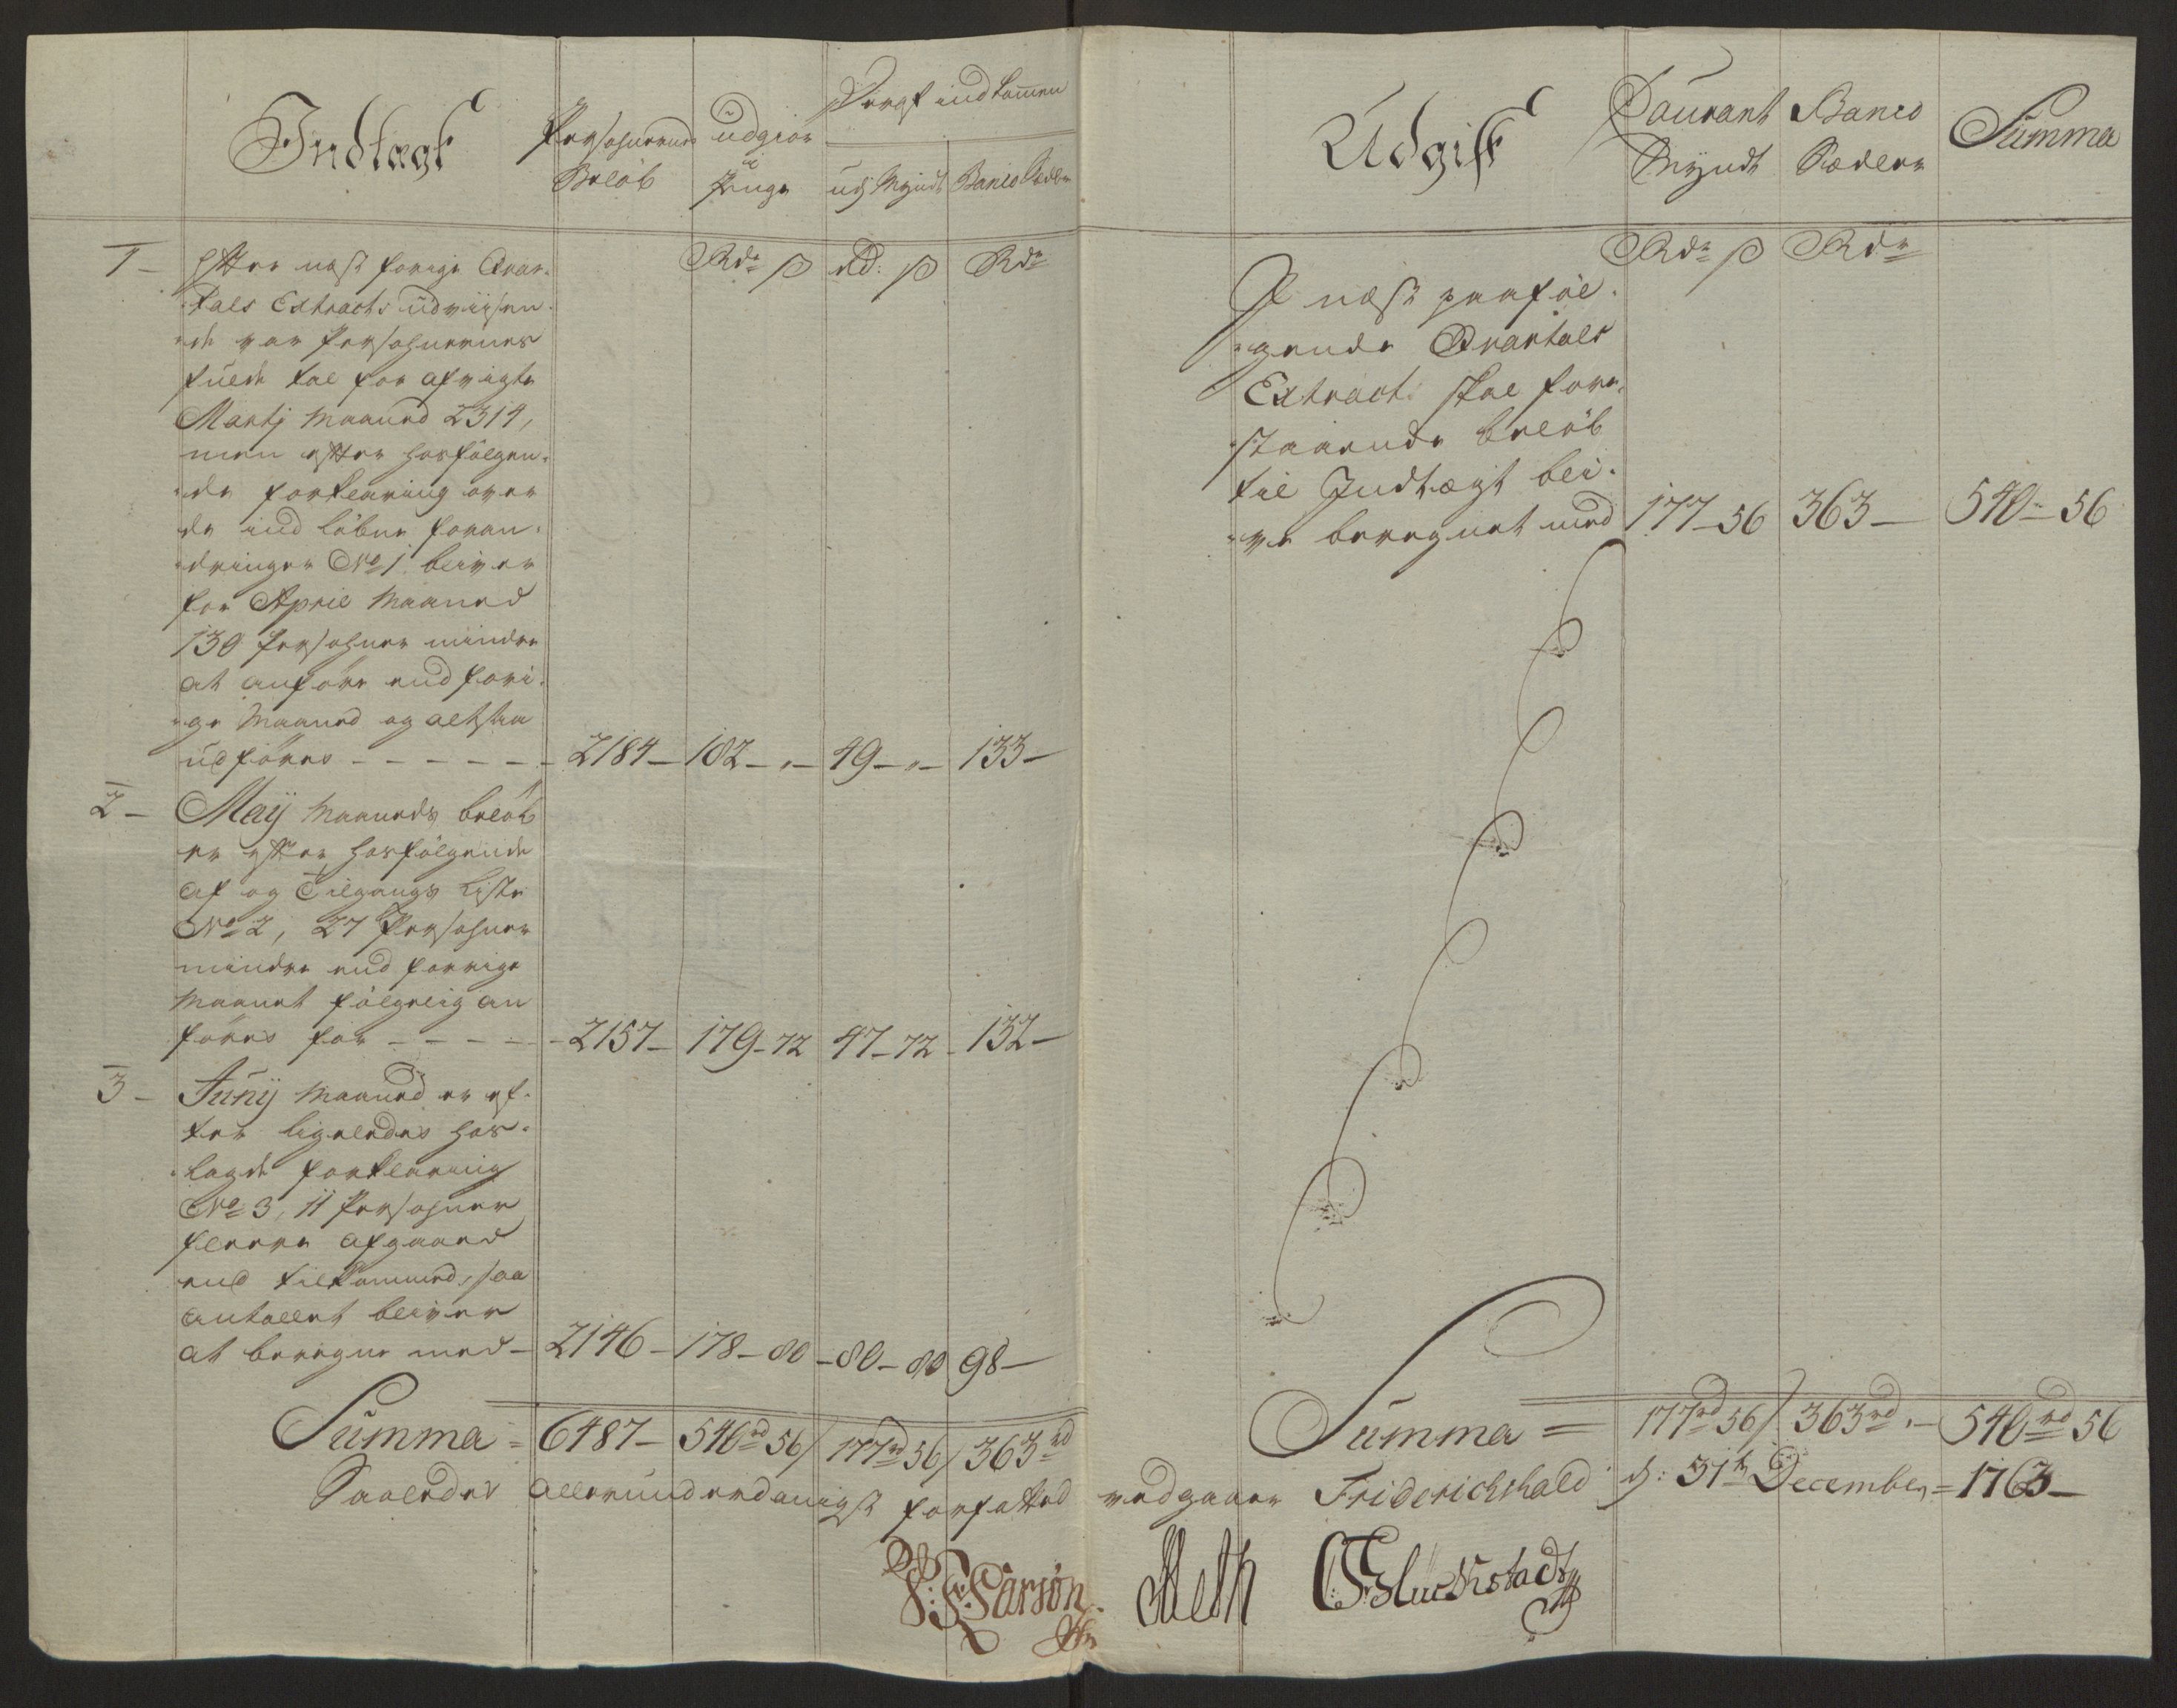 Indtægt
Persohnernes
Beløb
udgiør
i
Penge
Deraf indkommen
udj Myndt
Banco Sedler
Rdr ß
rd: ß
Rdr
1 -
Efter nest forige Qvar-
tals Extracts udviisen-
de var Persohnernes
fulde tal for afvigte
Martj Maaned 2314,
men efter hosfølgen-
de forklaring over
de indløbne foran-
dringer No 1 bliver
for April Maaned
130 Persohner mindre
at anføre end fori-
ge Maaned og altsaa
udføres - - - - - - 2184 - 182 - " - 49 - " - 133 -
2 -
Maij Maaneds beløb
er efter hosfølgende
af og Tilgangs Liste
No 2, 27 Persohner
mindre end forrige
Maanet følgelig an
føres for - - - - - 2157 - 179 - 72 47 - 72 - 132 -
3 -
Junij Maaned er ef-
ter ligeledes hos-
lagde forklaring
No 3, 11 Persohner
fleere afgaaed
end tilkommed, saa
antallet bliver
at beregne med - 2146 - 178 - 80 - 80 - 80 98 -
Summa = 6487 - 540rd 56/ 177rd 56/ 363rd
Udgift
Courant
Myndt
Banco
Sedler
Summa
Rdr ß
Rdr
I nest paaføl-
gende Qvartals
Extract skal fore-
staaende beløb
til Indtægt bli-
ve beregnet med 177 - 56 363 - 540 - 56
Summa = 177rd 56/ 363rd " - 540rd 56
Saaledes allerunderdanigst forfatted vedgaaer Friderichshald d: 31te December = 1763 -
Carsøn
Meth
Gluckstadt